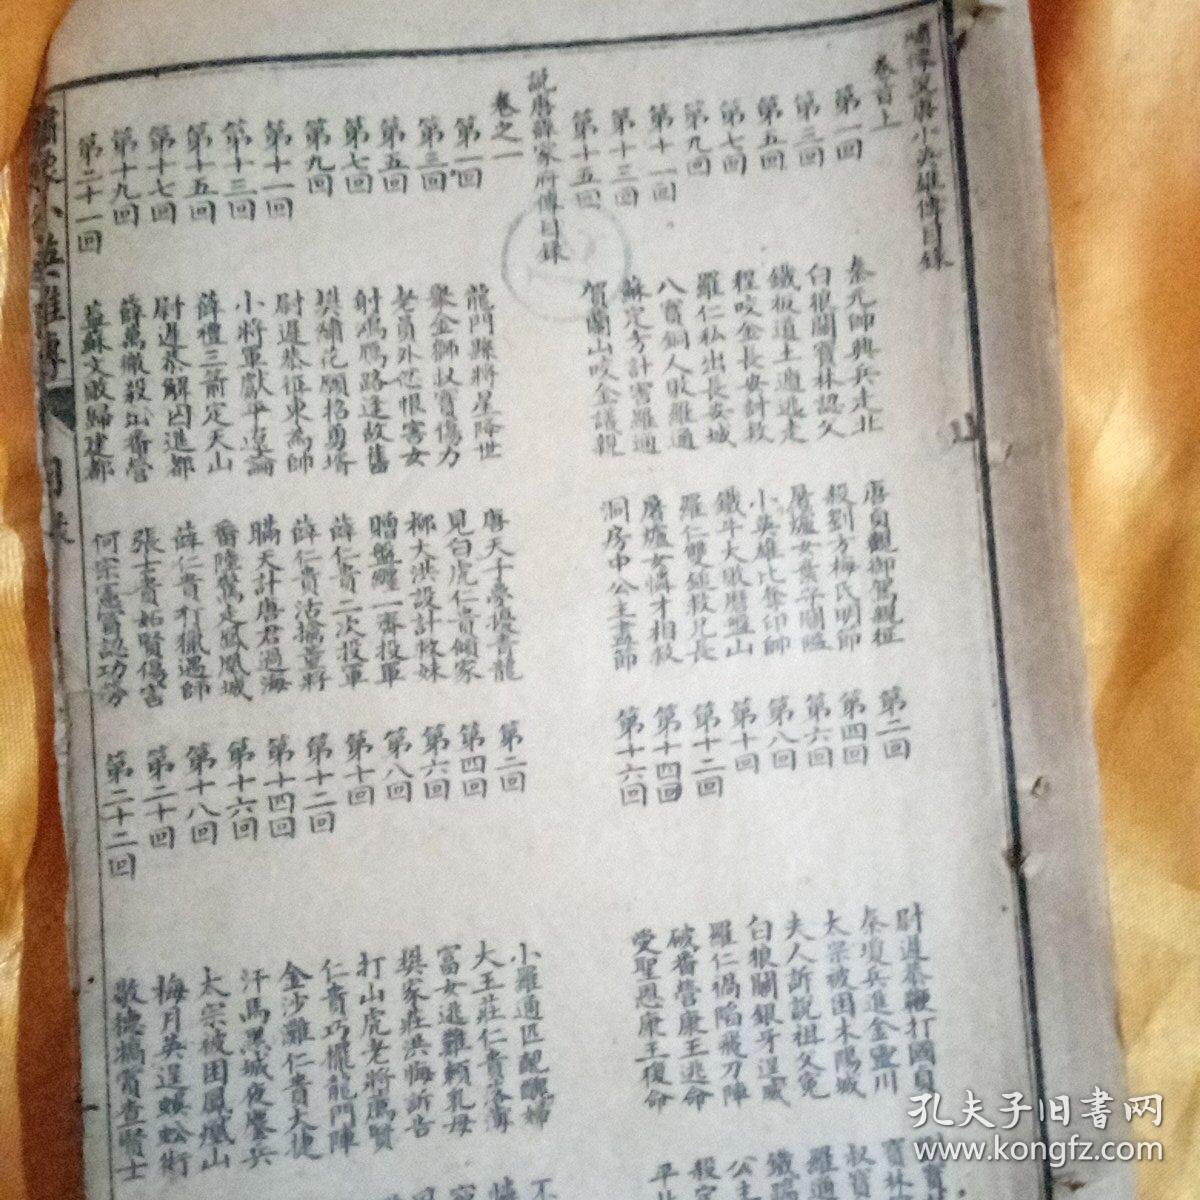 繡像說唐小英雄傳目錄
卷首上
第一回 秦元帥興兵走北 唐貞觀御駕親征 第二回 尉遲恭鞭打國貞
第三回 白狼關寶林認父 殺劉方梅氏明節 第四回 秦瓊兵進金靈川
第五回 鐵板道土遁逃走 屠爐女棄平關隘 第六回 太宗被困木陽城
第七回 程咬金長安討救 小英雄比奪印帥 第八回 夫人訴說祖父冤
第九回 羅仁私出長安城 鐵斗大敗磨盤山 第十回 白狼關銀牙逞威
第十一回 八寶銅人敗羅通 羅仁雙鎚救兄長 第十二回 羅仁禍陷飛刀陣
第十三回 蘇定方計害羅通 屠爐女憐才相救 第十四回 破番營康王逃命
第十五回 賀蘭山咬金議親 洞房中公主盡節 第十六回 受聖恩康王復命
說唐薛家府傳目錄
卷之一
第一回 龍門縣將星降世 唐天子夢擾青龍 第二回 小羅通匹配醜婦
第三回 舉金獅叔寶傷力 見白虎仁貴傾家 第四回 大王莊仁貴落薄
第五回 老員外忿恨害女 柳大洪設計救妹 第六回 富女逃難賴乳母
第七回 射鴻雁路逢故舊 贈盤纏一齊投軍 第八回 樊家莊洪海訴告
第九回 樊繡花願招勇壻 薛仁貴二次投軍 第十回 打山虎老將薦賢
第十一回 尉遲恭征東為帥 薛仁貴活擒董將 第十二回 仁貴巧擺龍門陣
第十三回 小將軍獻平遼論 瞞天計唐君過海 第十四回 金沙灘仁貴大捷
第十五回 薛禮三箭定天山 番陸驚走鳳凰城 第十六回 汗馬黑城夜鏖兵
第十七回 尉遲恭解囚進都 薛仁貴打獵遇帥 第十八回 太宗被困鳳凰山
第十九回 薛萬徹殺出番營 張士貴妬賢傷害 第二十回 梅月英逞蜈蚣術
第二十一回 蓋蘇文敗歸建都 何宗憲冒認功勞 第二十二回 敬德犒賞查賢士
繡像小英雄傳
孔夫子旧书网
www.kongfz.com